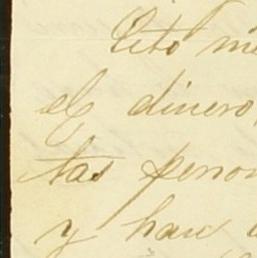 Esto me
el dinero,
tas person
y han